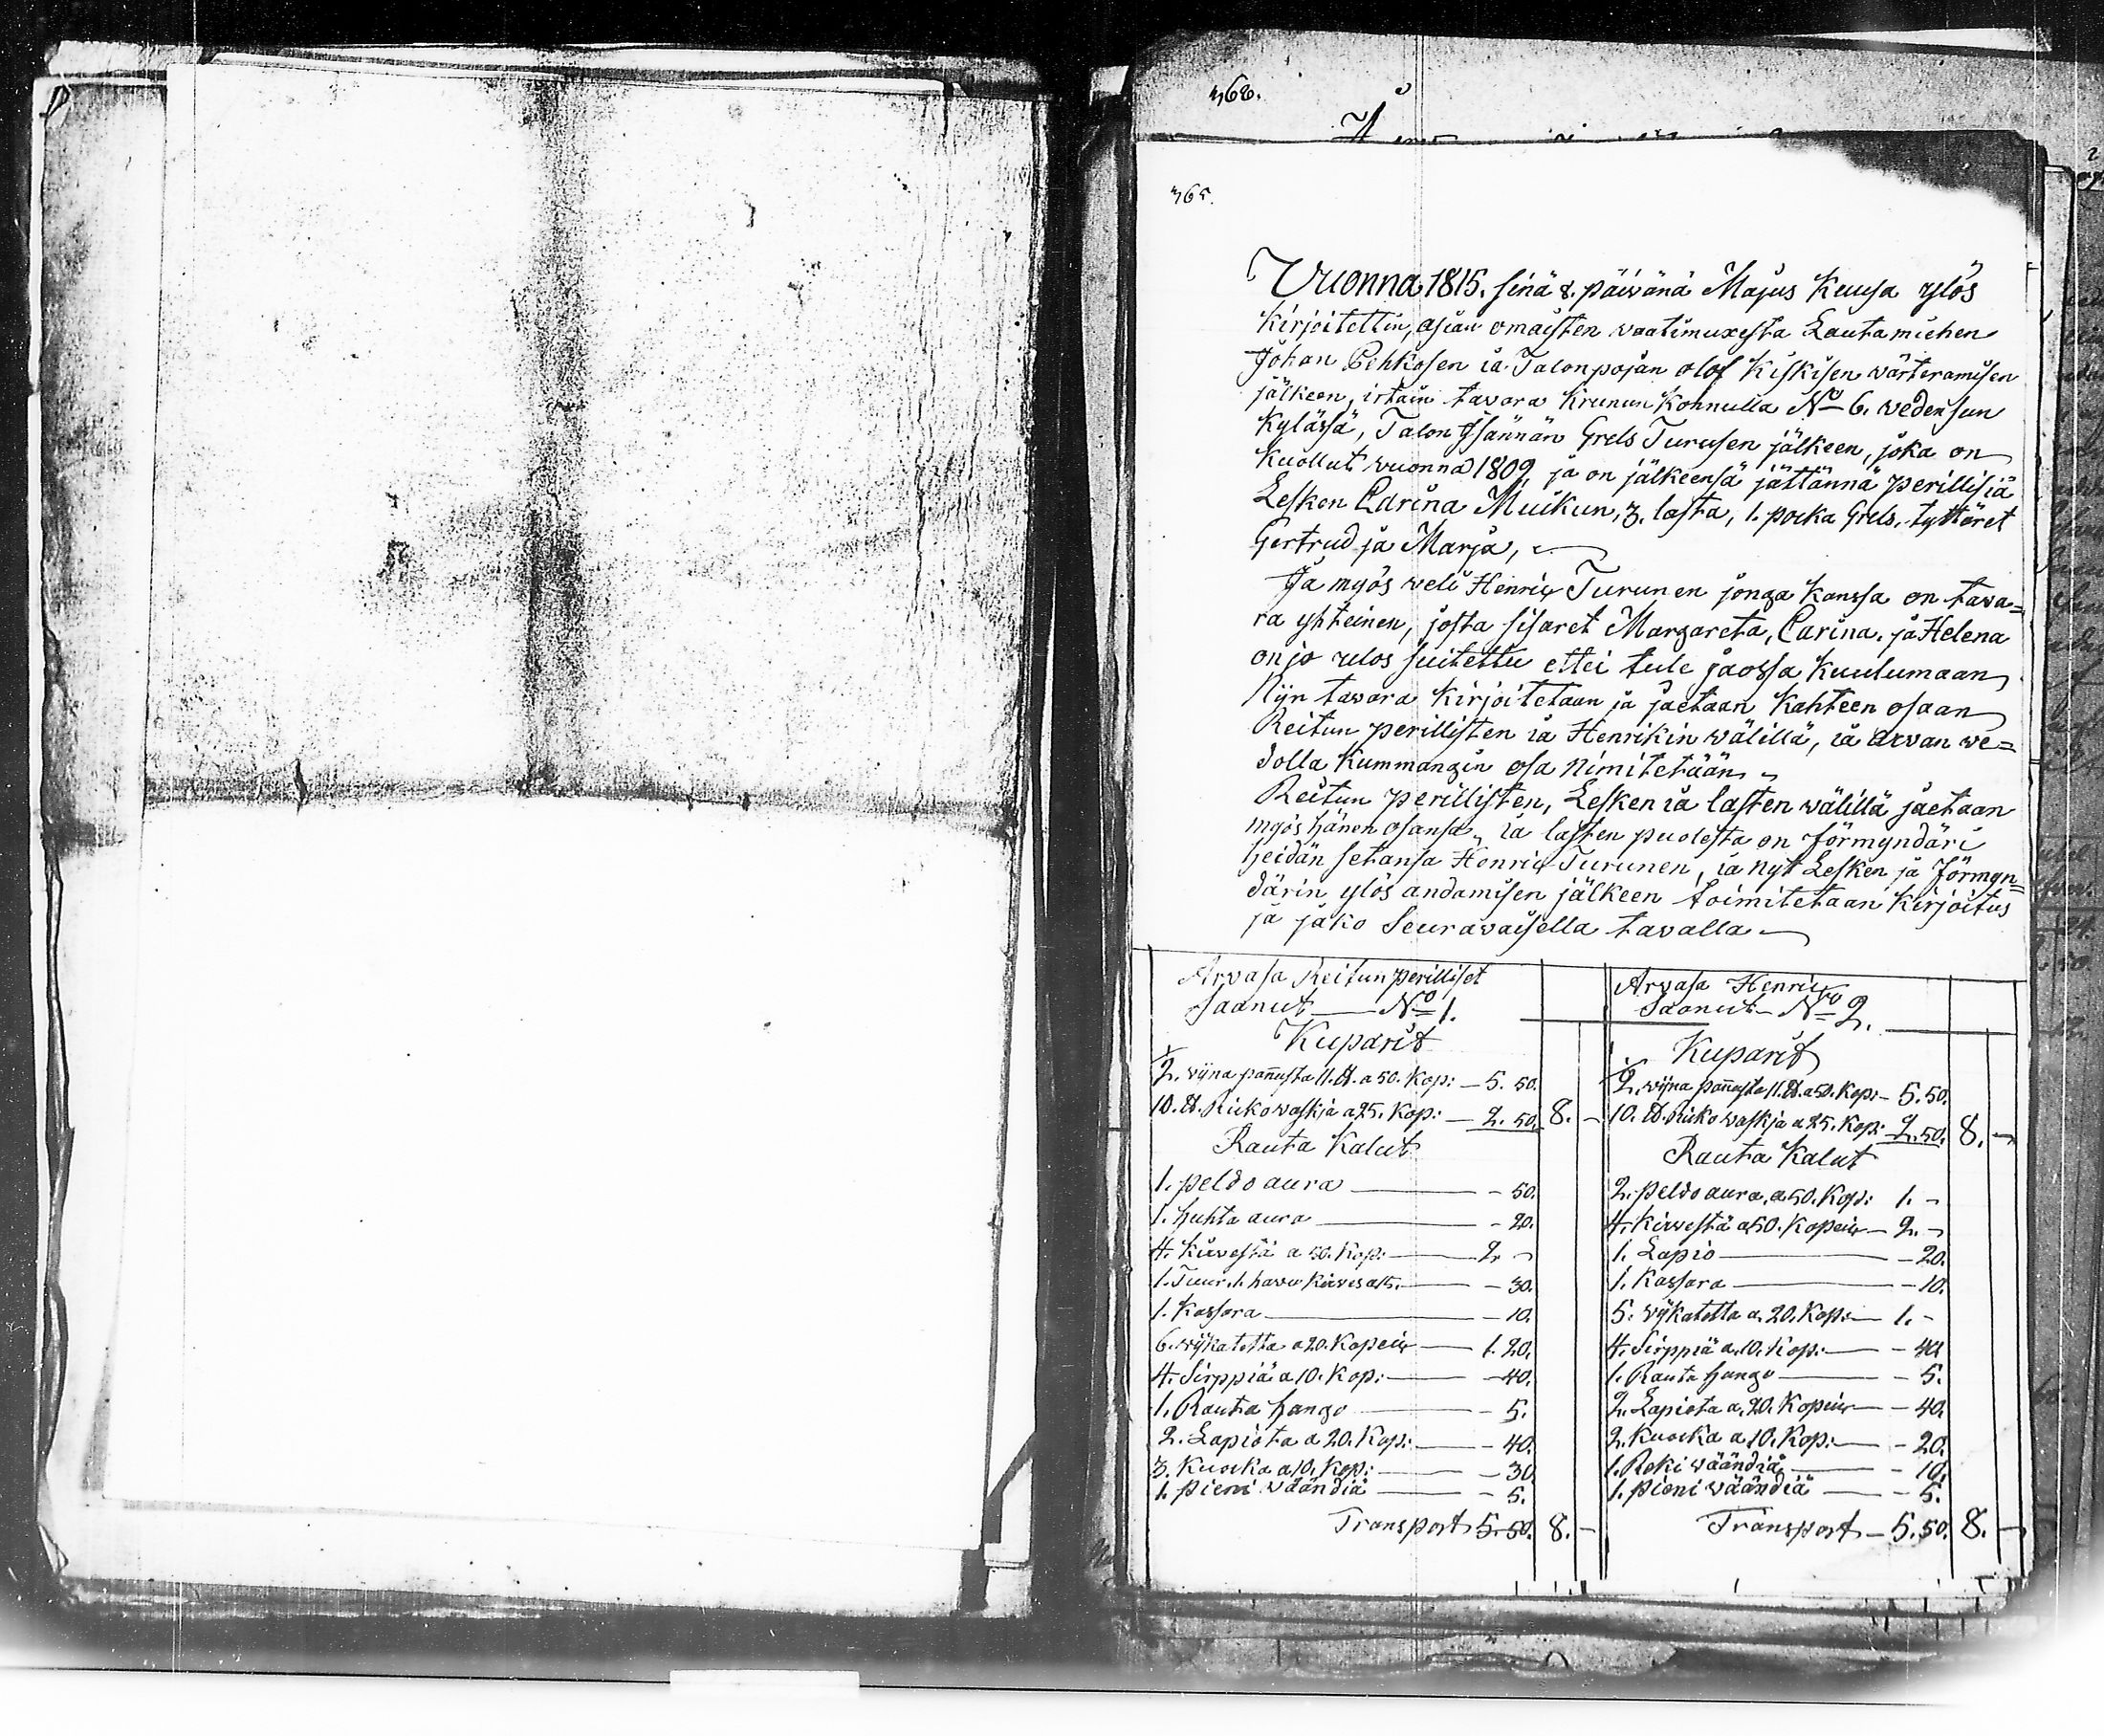 362.
365.
Wuonna 1815. sinä 8. päiwänä Majus Kuusa ylös
kirjoitettin, asian omaisten waatimuxesta Lautamiehen
Johan Pehkosen ia Talonpojan olof Kiskisen wärteramisen
jälkeen, irtain tavara Krunun Konnulla No 6. wedensun
Kylässä, Talon Isännän Grels Turusen jälkeen, joka on
Kuollut wuonna 1809, ja on jälkeensä jättännä perillisiä
Lesken Carina Muikun, 3. lasta, 1. poika Grels, tyttäret
Gertrud ja Marja,
Ja myös weli Henric Turunen jonga kanssa on tava=
ra yhteinen, josta sisaret Margareta, Carina. ja Helena
on jo ulos suitettu ettei tule jaossa kuulumaan
Nijn tavara kirjoitetaan ja jaetaan Kahteen osaan
Reitun perillisten ia Henrikin wälillä, ia arvan we=
dolla kummangin osa nimitetään
Reitun perillisten, Lesken ia lasten wälillä jaetaan
myös hänen osansa, ia lasten puolesta on förmyndäri
heidän setänsä Henric Turunen, ia nyt Lesken ja förmyn=
därin ylös andamisen jälkeen toimitetaan kirjoitus
ja jako Seurawaisella tavalla
Arvasa Reitun perilliset
saanut No 1.
Kuparit
1/2. wijna pannusta 11. ℔. a 50. Kop: 5. 50.
10. ℔. Rickowaskia a 25. Kop: 2. 50. 8. -
Rauta Kalut
1. peldo aura - 50.
1. huhta aura - 20.
4. kirvestä a 50. Kop: 2. -
1. Tuur. 1. havu kirves a 15. - 30.
1. Kassara - 10.
6. wijkatetta a 20. Kopeic 1. 20.
4. Sirppiä a 10. Kop: - 40.
1. Rauta hango - 5.
2. Lapiota a 20. Kop: - 40.
3. Kuocka a 10. Kop: - 30
1. pieni wäändiä - 5.
Transport 5. 50. 8. -
Arvasa Henric
Saanut No 2.
Kuparit
1/2. wijna pannusta 11. ℔. a 50. Kop: 5. 50.
10. ℔. Ricko waskja a 25. Kop: 2. 50. 8. -
Rauta Kalut
2. peldo aura, a 50. Kop: 1. -
4. Kirvestä a 50. Kopeic 2. -
1. Lapio - 20.
1. Kassara - 10.
5. wijkatetta a. 20. Kop: 1. -
4. Sirppiä a. 10. Kop: - 40
1. Rauta hango - 5.
2. Lapiota a. 20. Kopeic - 40.
2. Kuocka a 10. Kop: - 20.
1. Reki wäändiä - 10.
1. pieni wäändiä - 5.
Transport 5. 50. 8. -